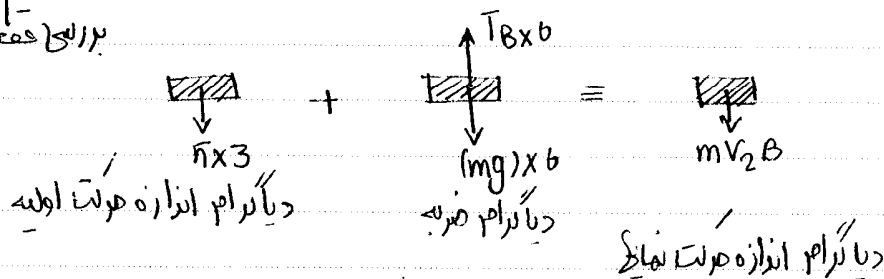 بررسی
T_B×6
+ ≡
n×3 (mg)×6 mV₂B
دیاگرام اندازه حرکت اولیه دیاگرام ضربه
دیاگرام اندازه حرکت نهایی